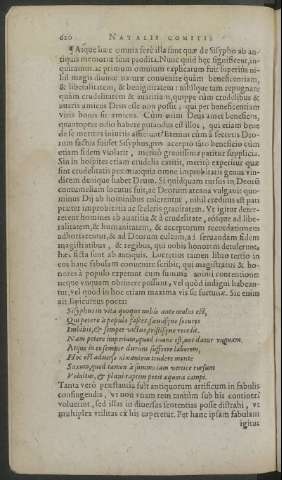 620 NATALIS COMITIS
Atque hæc omnia ferè illa sunt quæ de Sisypho ab an-
tiquis memoriæ sunt prodita. Nunc quid hæc significent, in-
quiramus. ac primum omnium explicatum fuit superius ni-
hil magis diuinæ naturæ conuenire quàm beneficentiam,
& liberalitatem, & benignitatem: nihilque tam repugnare
quàm crudelitatem & auaritiam, quippe nàm crudelibus &
auaris amicus Deus esse non possit; qui per beneficentiam
viris bonis sit amicus. Cùm enim Deus amet beneficos,
quantopere odio habere putandus est illos, qui etiam bene
de se meritos iniuriis afficiunt? Etenim cùm à secretis Deo-
rum factus fuisset Sisyphus, non accepto
etiam fidem violarit, meritò grauissima patitur supplicia.
Sin in hospites etiam crudelis extitit, meritò expetitur quæ
sint crudelitatis præmia
dem denique habet Deum. Si quidquam rursus in Deorum
contumeliam locutus fuit, ac Deorum arcana vulgauit quo-
minus Dij ab hominibus colerentur, nihil credimus est pati
præter improbitatis ac sceleris grauitatem. Vt igitur deter-
rerent homines ab auaritia & à crudelitate, eósque ad libe-
ralitatem, & humanitatem, & acceptorum recordationem
adhortarentur, & ad Deorum cultum, ad seruandam fidem
magistratibus, & regibus, qui nobis honorem detulerunt,
hæc ficta sunt ab antiquis. Lucretius tamen libro tertio in
eos hanc fabulam conuenire scribit, qui magistratus & ho-
nores à populo expetunt cum summa animi contentione
neque vnquam obtinere possunt, vel quòd indigni habean-
tur, vel quòd in hoc etiam maxima vis sit fortunæ. Sic enim
ait sapiens poëta:
Sisyphus in vita quoque nobis ante oculos est,
Qui petere à populo fasces, sæuásque secures
Imbibit, & semper victus, tristísque recedit.
Nam petere imperium, quod inane est, nec datur vnquam,
Atque in eo semper durum sufferre laborem,
Hoc est aduerso nixantem trudere monte
Saxum, quod tamen à summo iam vertice rursum
Voluitur, & plani raptim petit æquora campi.
Tanta verò præstantia fuit antiquorum artificum in fabulis
confingendis, vt non vnam rem tantùm sub his contineri
voluerint, sed illas in diuersas sententias posse distrahi, vt
multiplex vtilitas ex his caperetur. Per hanc ipsam fabulam
igitur